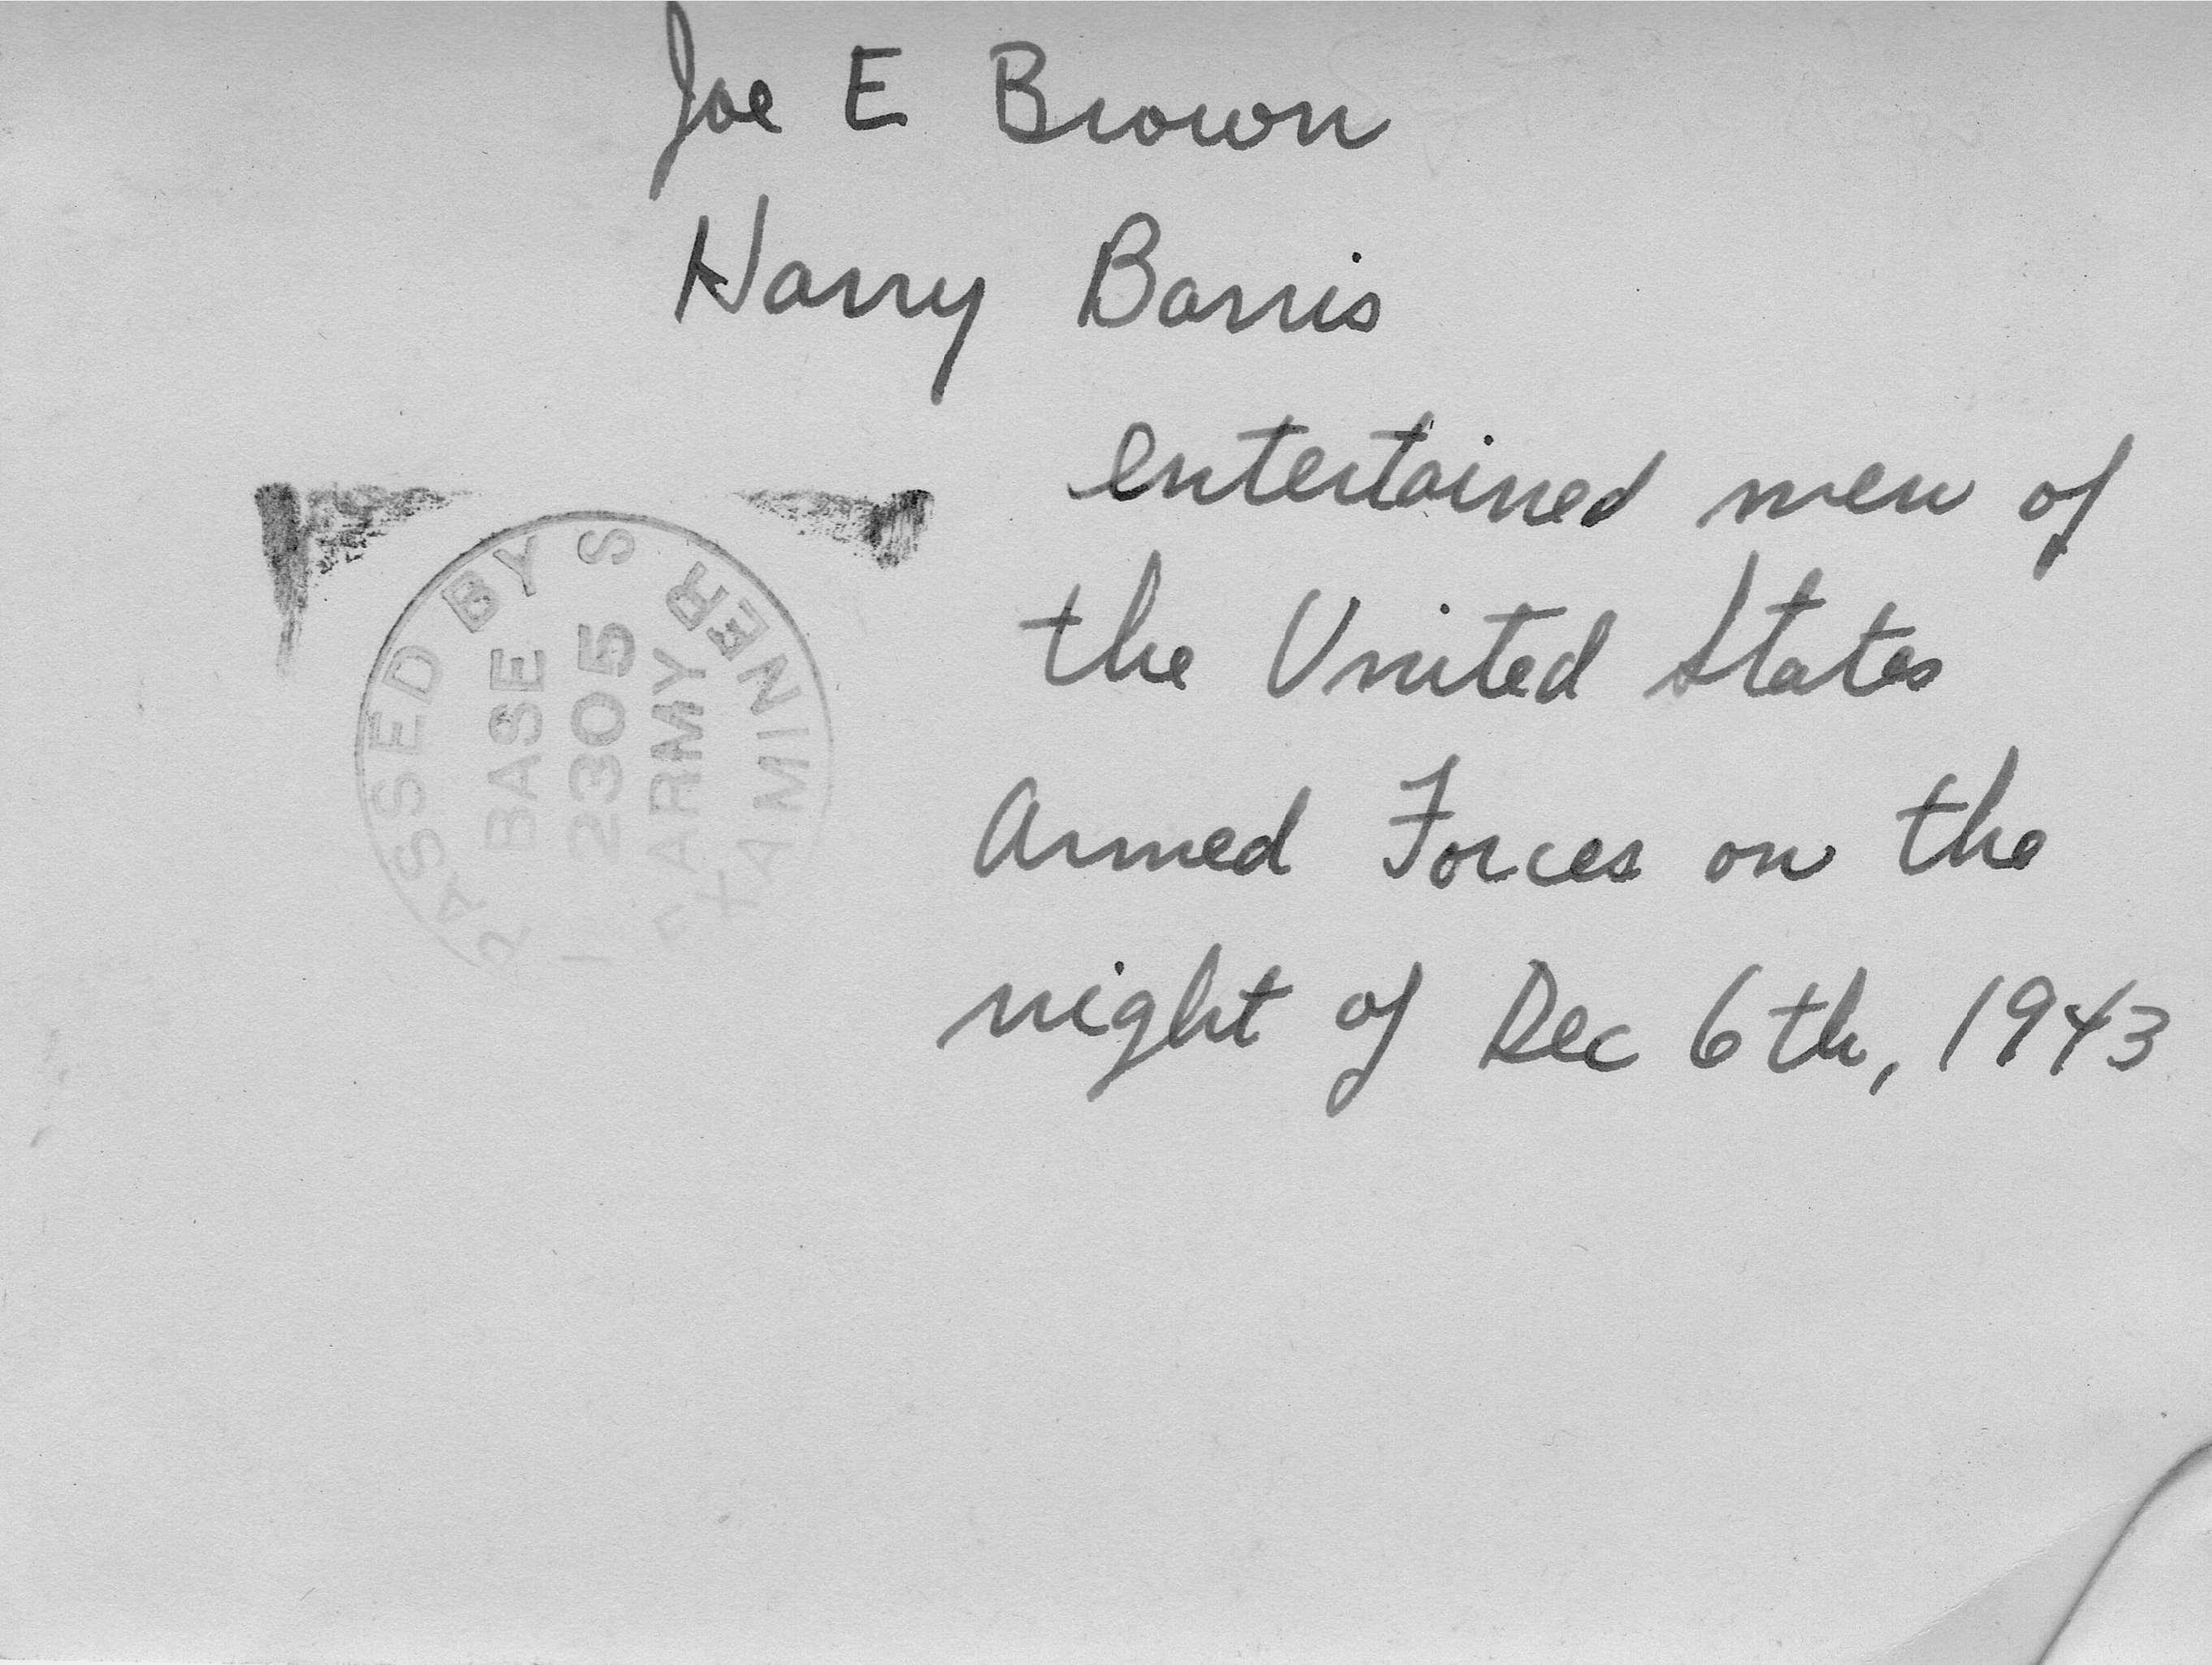 Joe E Brown
Harry Barris
entertained men of
the United States
Armed Forces on the
night of Dec 6th, 1943
PASSED BY
BASE
2305
ARMY
EXAMINER